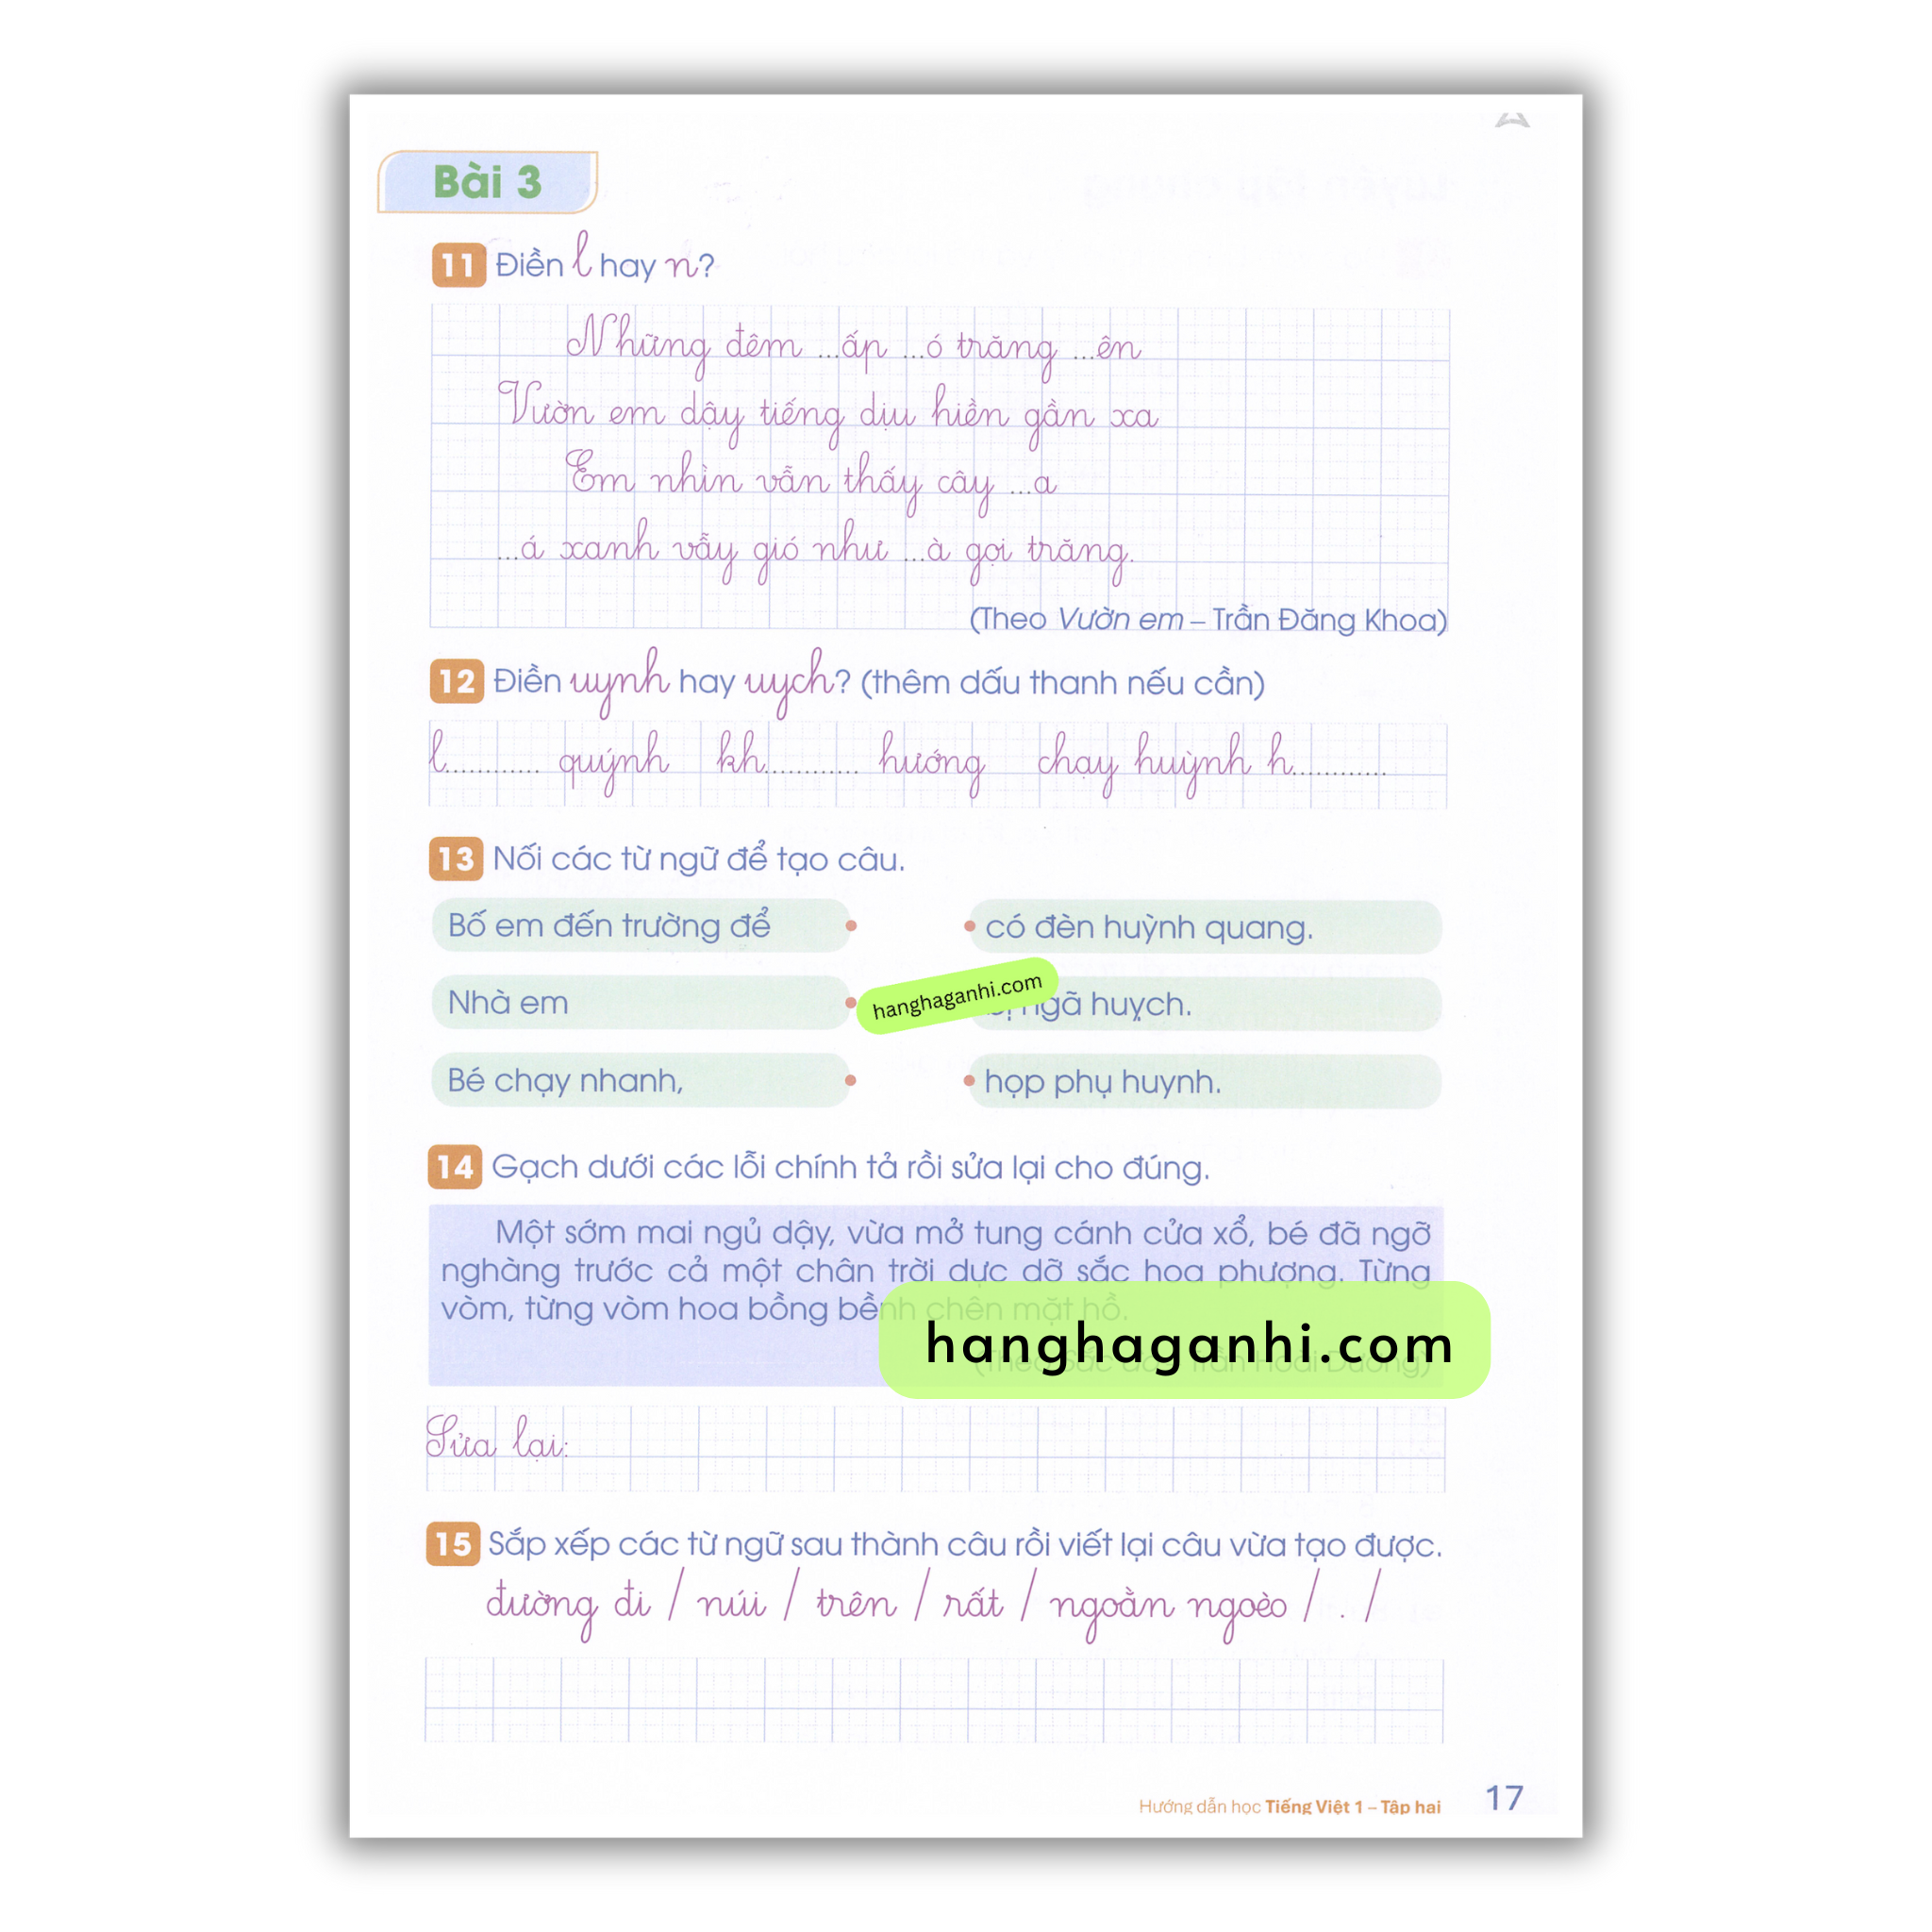 Bài 3
11 Điền l hay n?
Những đêm ...ấp ...ó trăng ...ên
Vườn em dậy tiếng dịu hiền gần xa
Em nhìn vẫn thấy cây ...a
...á xanh vẫy gió như ...à gọi trăng.
(Theo Vườn em – Trần Đăng Khoa)
12 Điền uynh hay uych? (thêm dấu thanh nếu cần)
l............ quýnh kh............ hướng chạy huỳnh h............
13 Nối các từ ngữ để tạo câu.
Bố em đến trường để
có đèn huỳnh quang.
Nhà em
hanghaganhi.com
ngã huỵch.
Bé chạy nhanh,
họp phụ huynh.
14 Gạch dưới các lỗi chính tả rồi sửa lại cho đúng.
Một sớm mai ngủ dậy, vừa mở tung cánh cửa xổ, bé đã ngỡ
nghàng trước cả một chân trời dực dỡ sắc hoa phượng. Từng
vòm, từng vòm hoa bồng bềnh chên mặt hồ.
hanghaganhi.com
(Theo Trần Hoài Dương)
Sửa lại:
15 Sắp xếp các từ ngữ sau thành câu rồi viết lại câu vừa tạo được.
đường đi / núi / trên / rất / ngoằn ngoèo / . /
Hướng dẫn học Tiếng Việt 1 – Tập hai 17